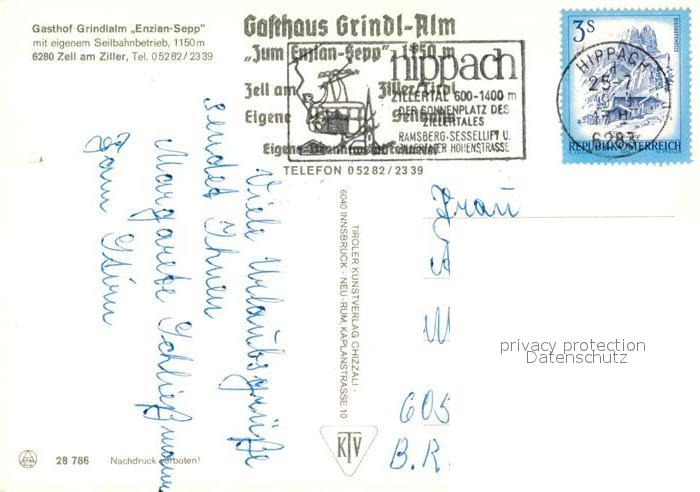 Gasthof Grindlalm „Enzian-Sepp"
mit eigenem Seilbahnbetrieb, 1150 m
6280 Zell am Ziller, Tel. 0 52 82 / 23 39
Gasthaus Grindl-Alm
„Zum Enzian-Sepp" 1150 m
Zell am Ziller/Tirol
Eigene Seilbahn
Eigene
TELEFON 0 52 82 / 23 39
hippach
ZILLERTAL 600-1400 m
DER SONNENPLATZ DES
ZILLERTALES
RAMSBERG-SESSELLIFT U.
ZILLERTALER HÖHENSTRASSE
3s
HIPPACH
25.-7.
17 H
6283
REPUBLIK ÖSTERREICH
Viele Urlaubsgrüße
sendet Ihnen
Margarete Schließmann
TIROLER KUNSTVERLAG CHIZZALI ·
6040 INNSBRUCK - NEU-RUM, KAPLANSTRASSE 10
KTV
Frau
605
B.R.
privacy protection
Datenschutz
28 786 Nachdruck verboten!